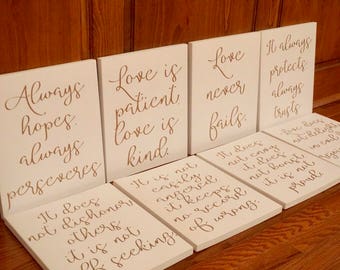 Always
hopes,
always
perseveres
Love is
patient,
love is
kind.
Love
never
fails.
It always
protects,
always
trusts
It does
not dishonor
others
it is not
seeking
It is not
easily
angered,
it keeps
no record
of wrong.
It does
not
it does
not
it is not
proud.